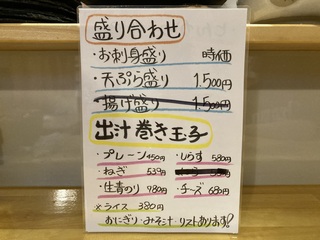 盛り合わせ
・お刺身盛り 時価
・天ぷら盛り 1,500円
・揚げ盛り 1,500円
出汁巻き玉子
・プレーン 450円 ・しらす 580円
・ねぎ 539円
・生青のり 780円 ・チーズ 680円
※ライス 380円
おにぎり・みそ汁・リストあります!